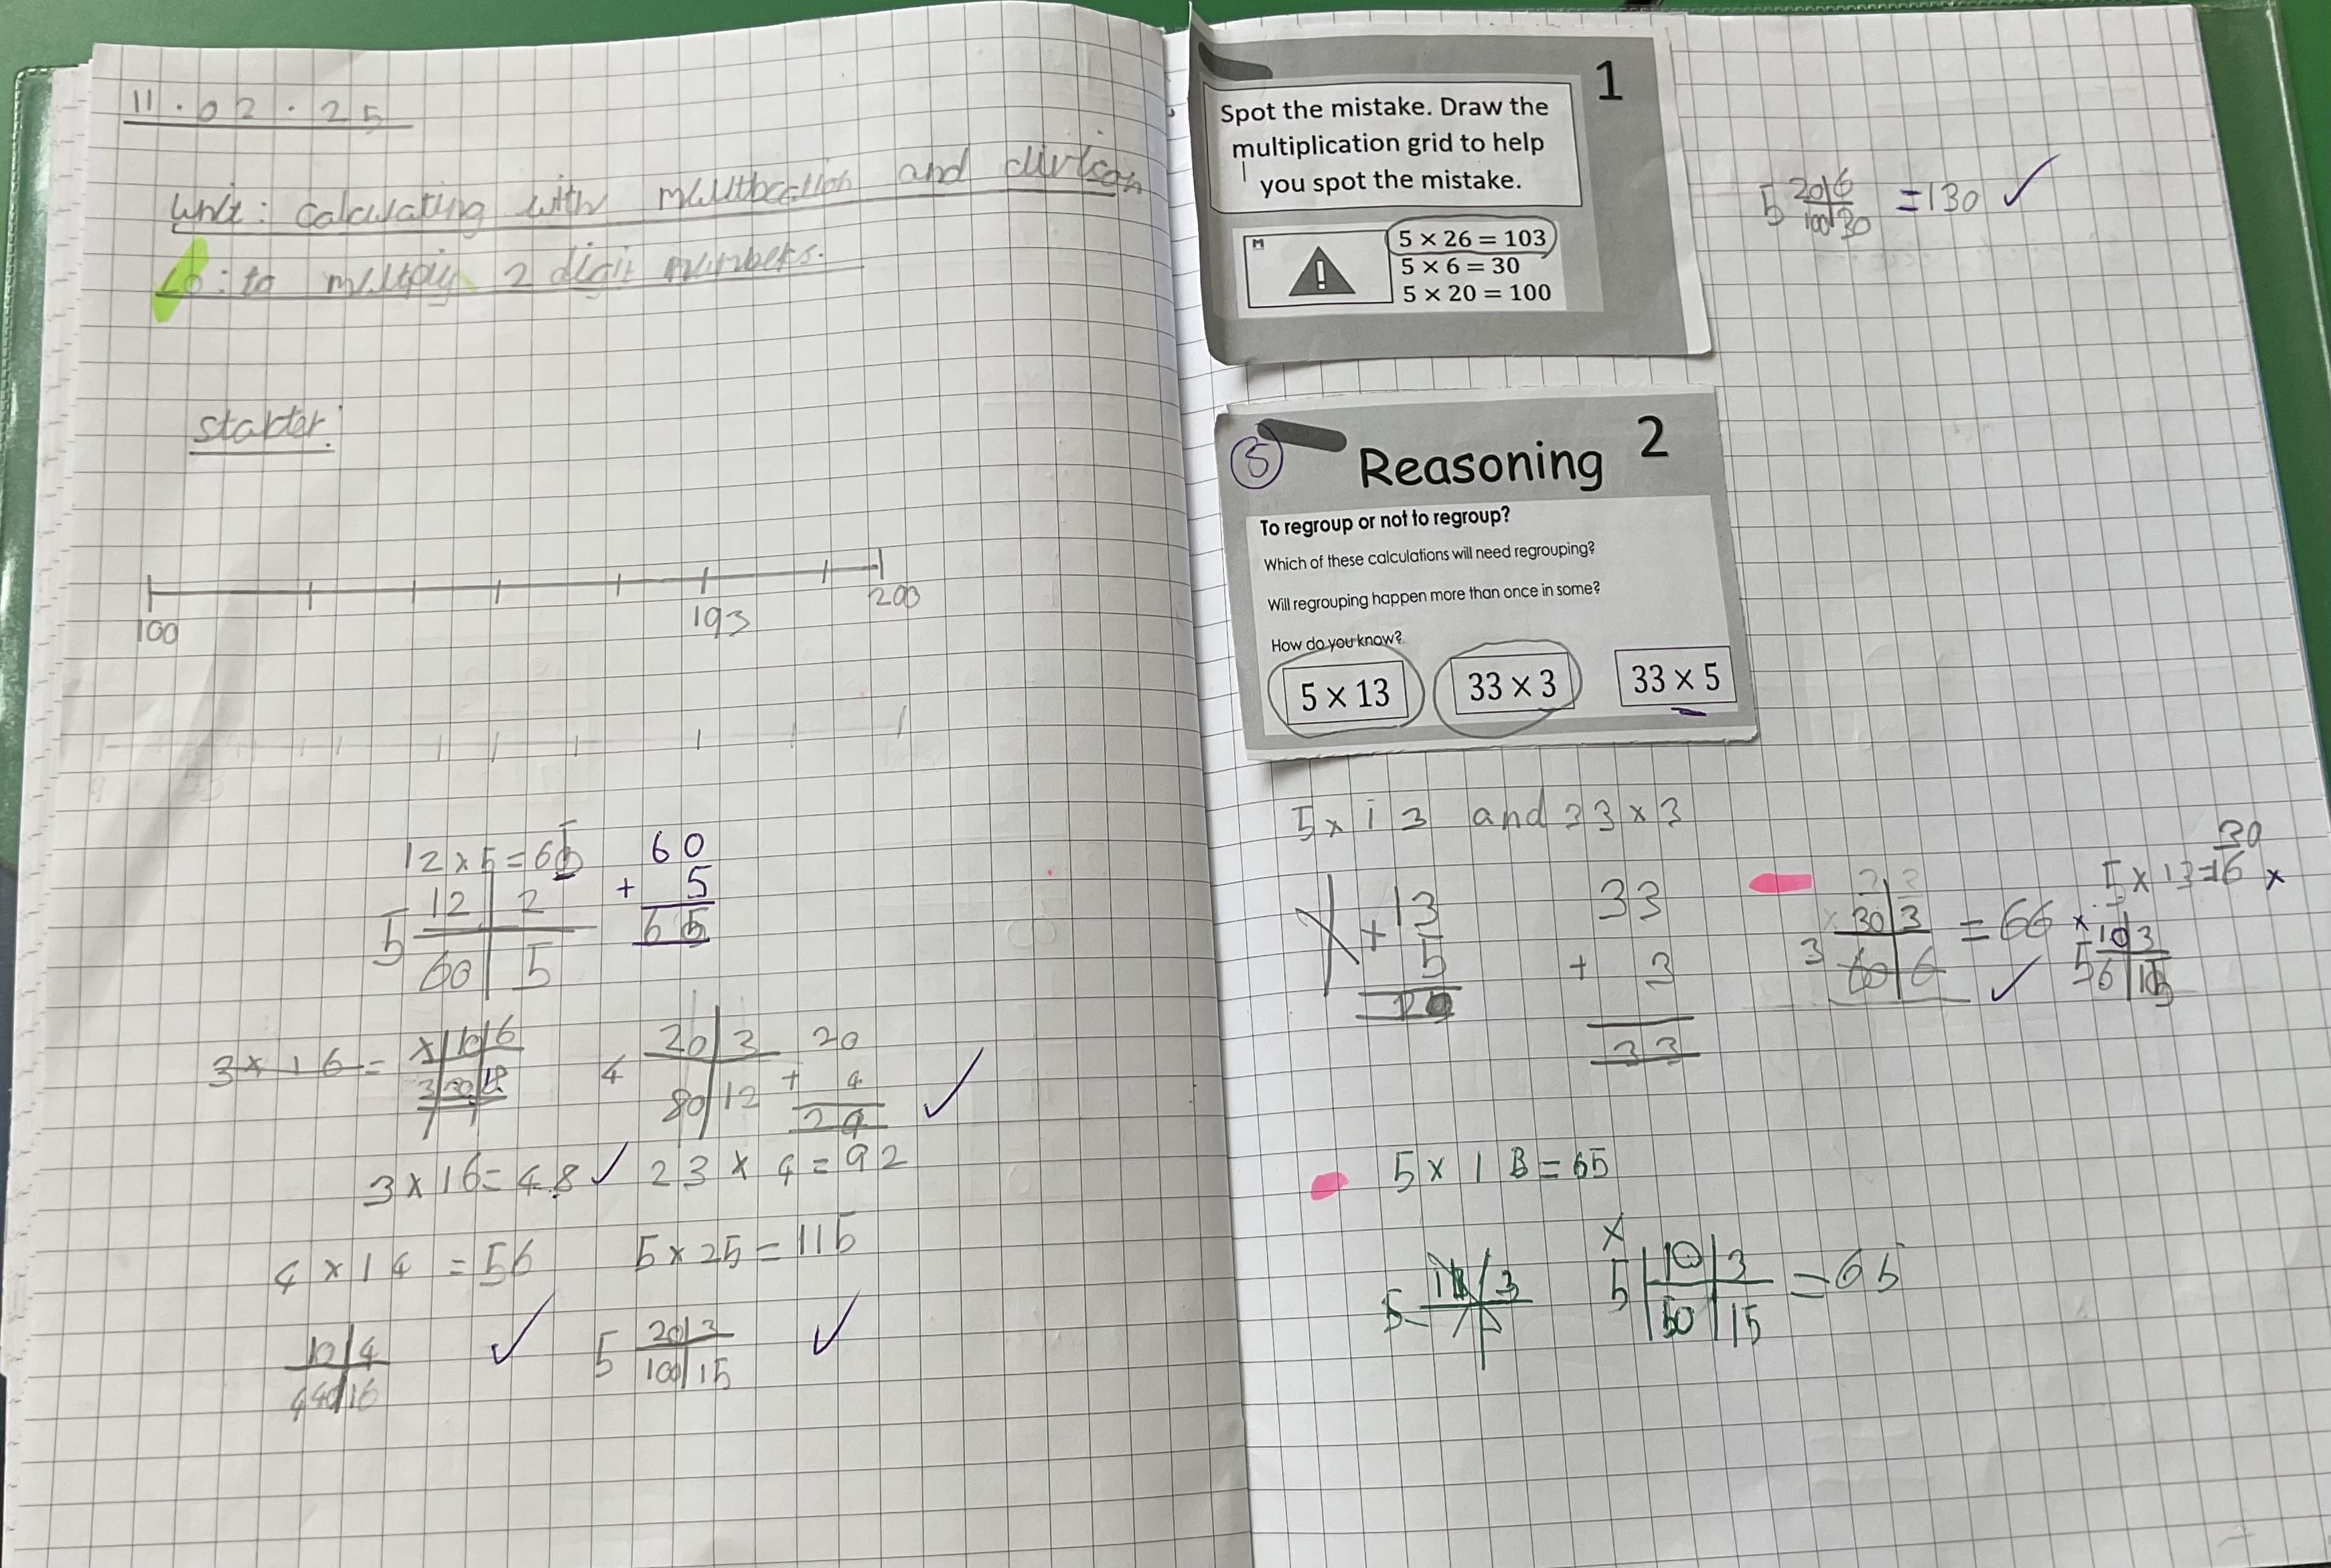 11.02.25
Unit: Calculating with multbcation and divison
LO: to multply 2 digit numbers.
starter:
100 193 200
12 x 5 = 65
12 2
5
60 5
60
+ 5
65
3 x 16 =
x 10 6
3 30 18
20 3
4
80 12
20
+ 4
24
3 x 16 = 48 ✓
23 x 4 = 92 ✓
4 x 14 = 56
10 4
4 40 16 ✓
5 x 25 = 115
5 20 3
100 15 ✓
1
Spot the mistake. Draw the
multiplication grid to help
you spot the mistake.
M
!
5 × 26 = 103
5 × 6 = 30
5 × 20 = 100
5 20 6 = 130 ✓
100 30
S
Reasoning 2
To regroup or not to regroup?
Which of these calculations will need regrouping?
Will regrouping happen more than once in some?
How do you know?
5 × 13
33 × 3
33 × 5
5 x 13 and 33 x 3
13
+ 5
33
+ 3
33
30 3 = 66
3
60 6 ✓
30
5 x 13 = 16 x
x 10 3
5 6 15
5 x 13 = 65
5 3
x
5 10 3 = 65
50 15